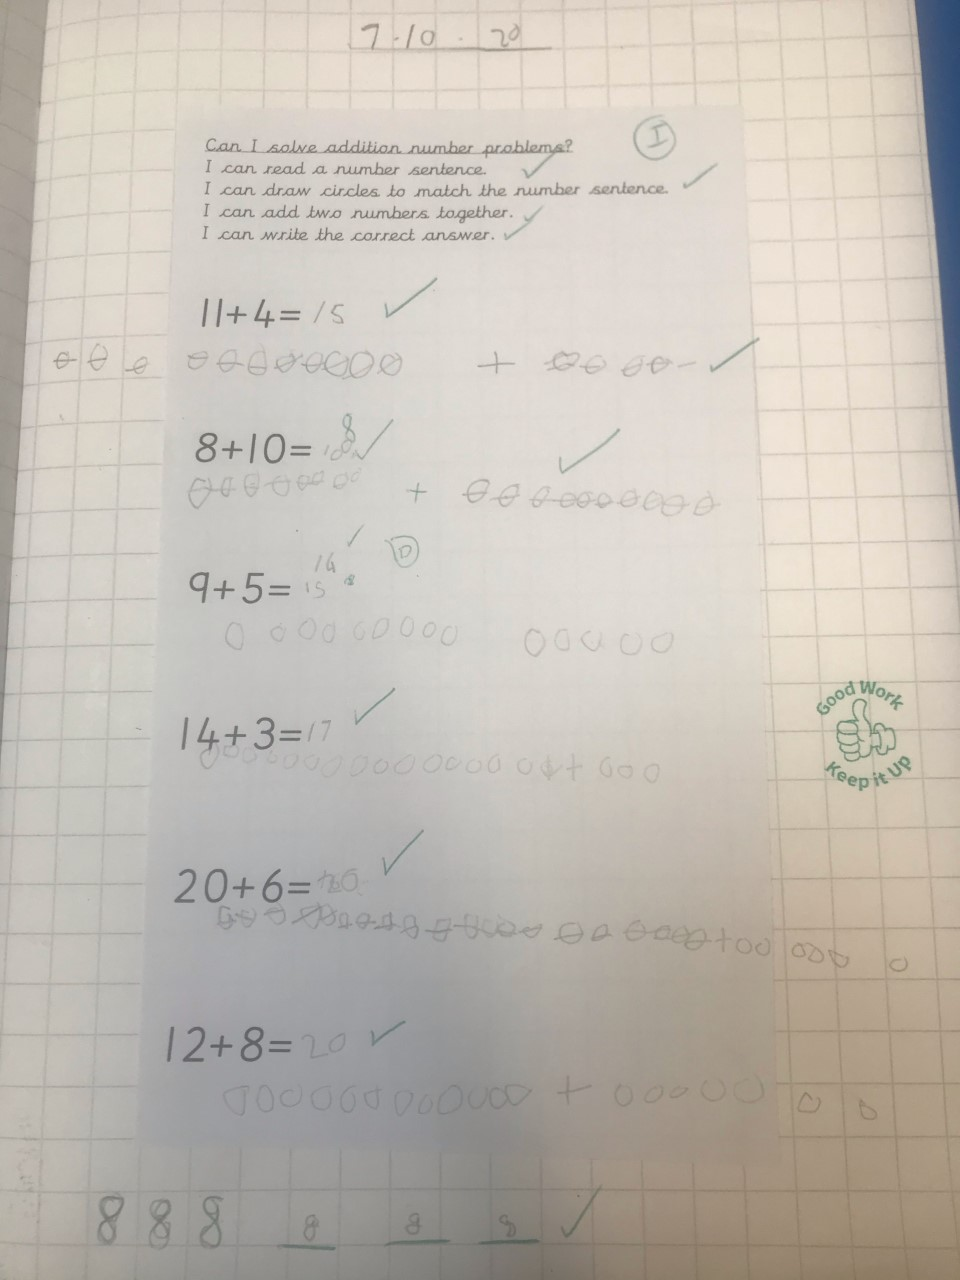 7.10.20
I
Can I solve addition number problems?
I can read a number sentence.
I can draw circles to match the number sentence.
I can add two numbers together.
I can write the correct answer.
11+4=15
+
8
8+10=18
+
14
D
9+5=15
14+3=17
+
Good Work
Keep it UP
20+6=
+
12+8=20
+
8 8 8 8 8 8